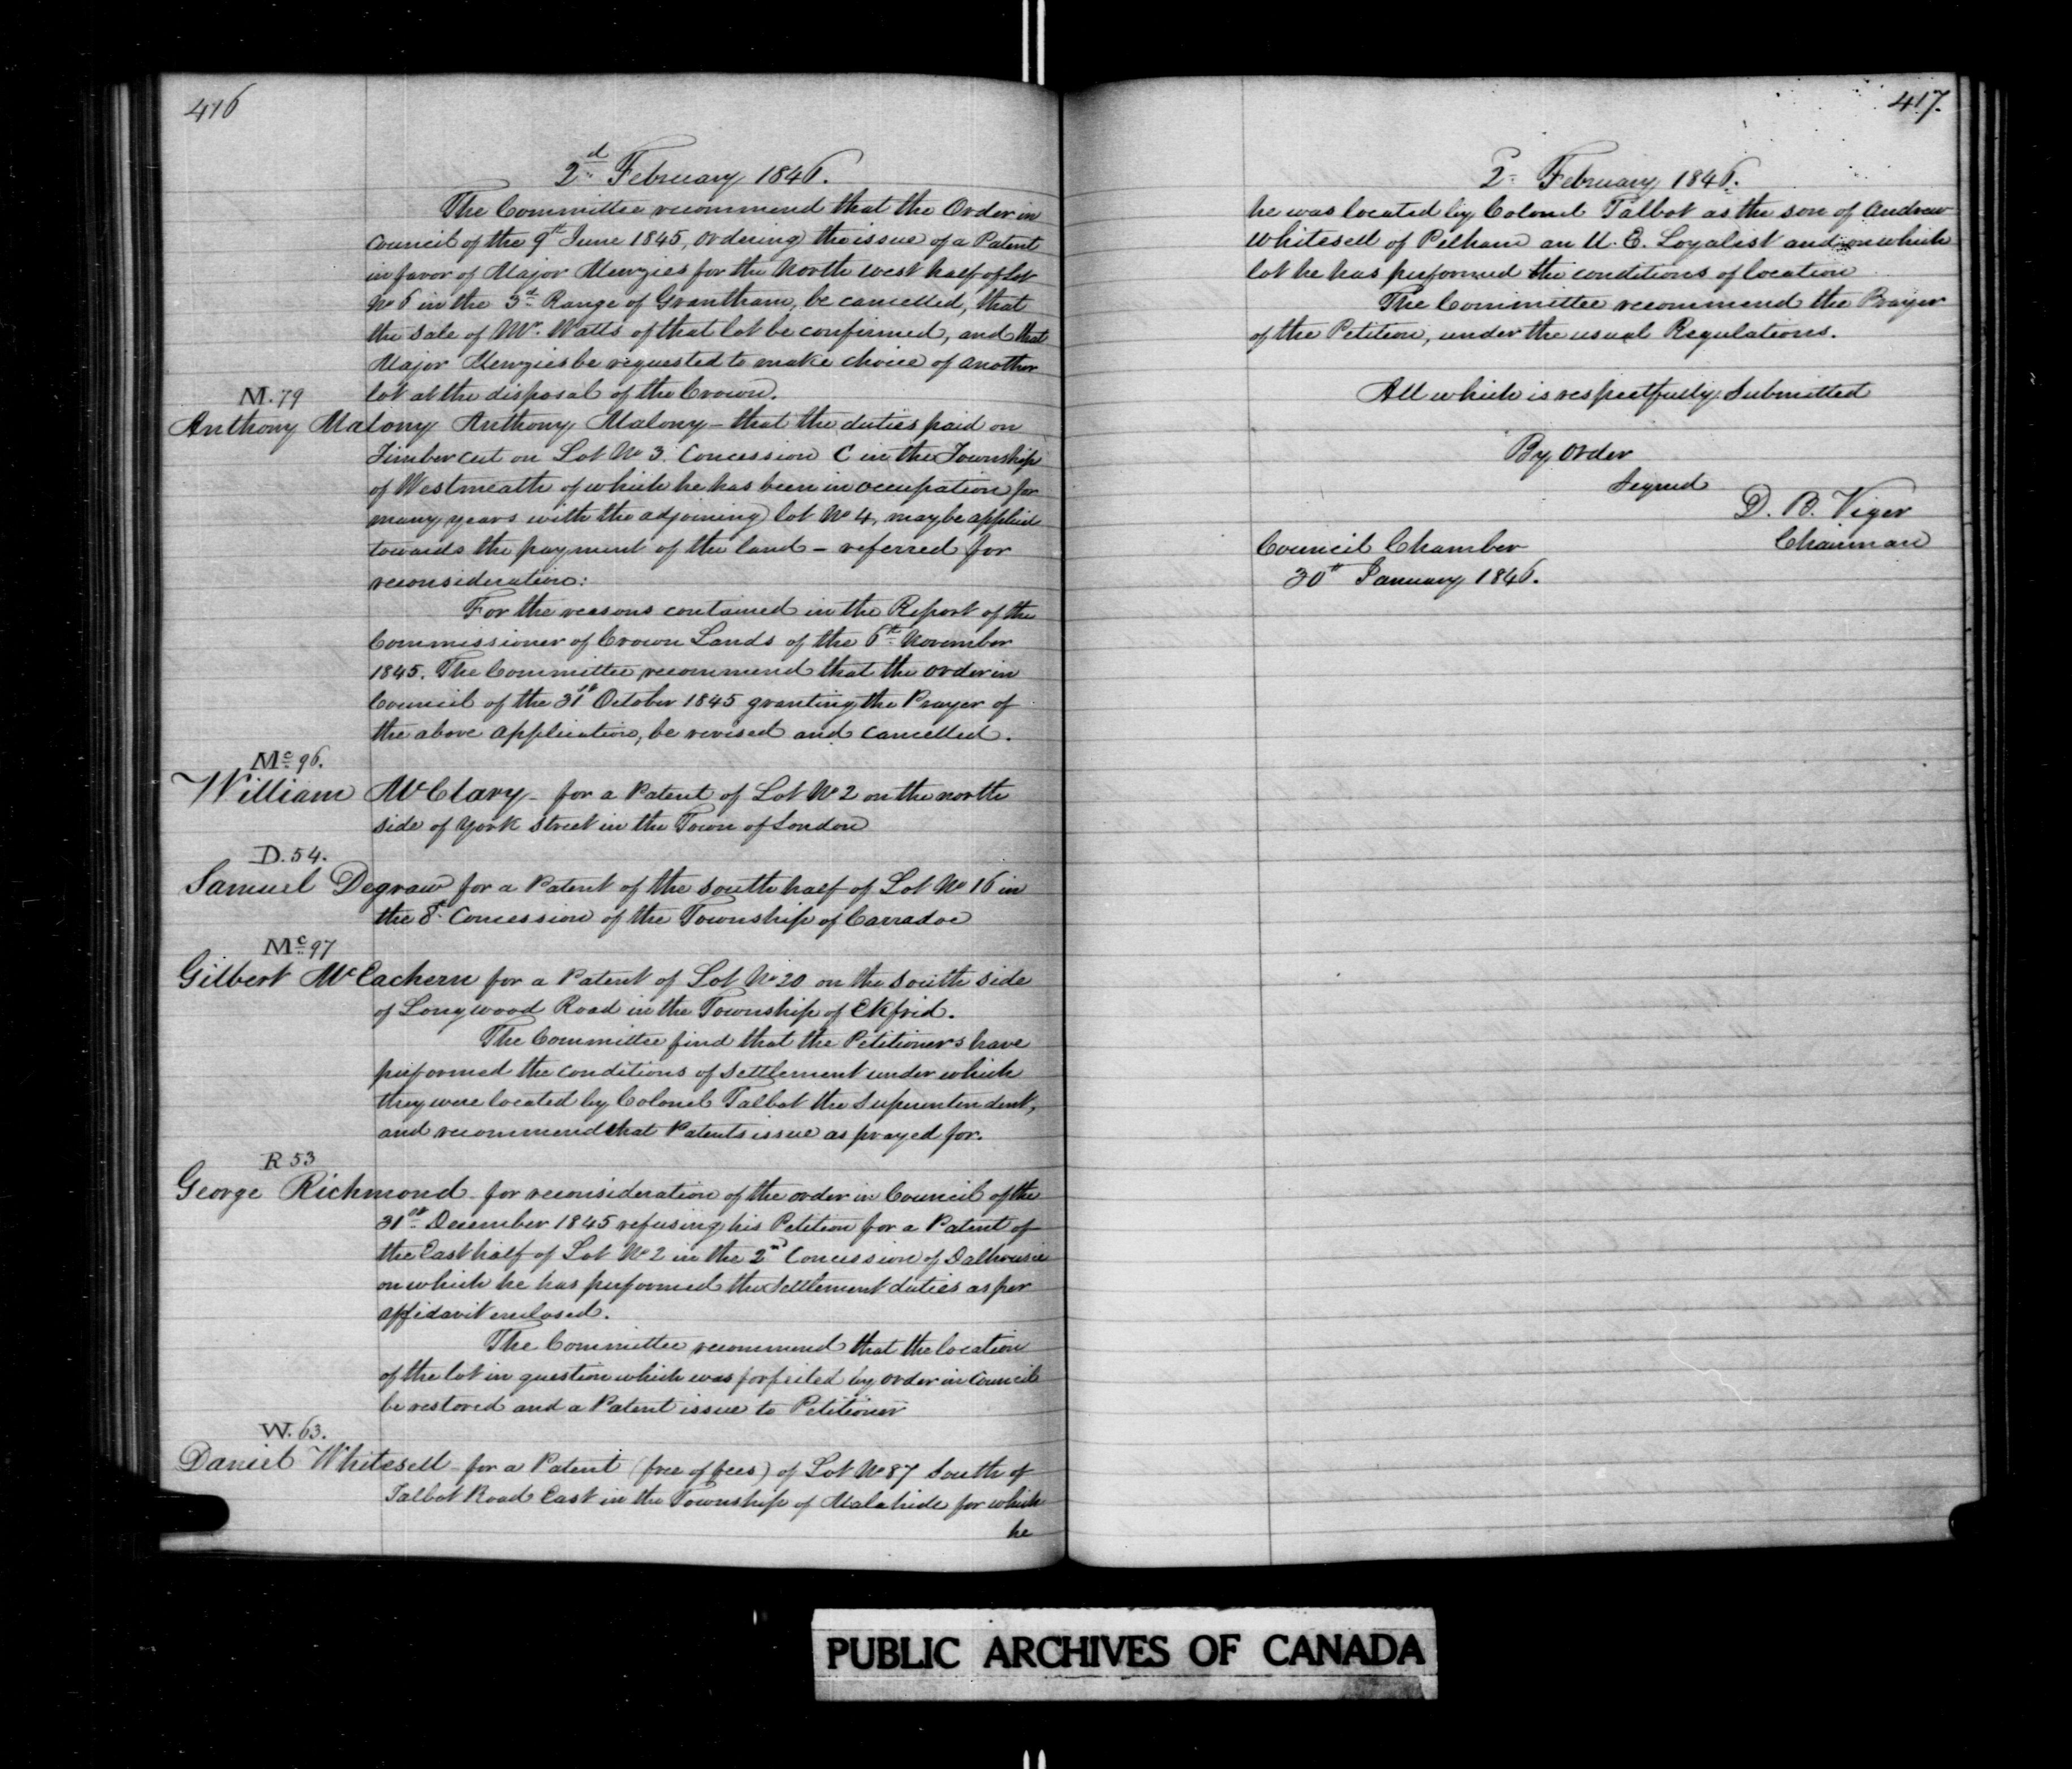 416
2d February 1846.
The Committee recommend that the Order in
Council of the 9th June 1845, ordering the issue of a Patent
in favor of Major Menzies for the North west half of Lot
No 6 in the 3d Range of Grantham, be cancelled, that
the sale of Mr. Watts of that lot be confirmed, and that
Major Menzies be requested to make choice of another
lot at the disposal of the Crown.
M. 79
Anthony Malony Anthony Malony - that the duties paid on
Timber cut on Lot No 3. Concession C in the Township
of Westmeath of which he has been in occupation for
many years with the adjoining lot No 4, may be applied
towards the payment of the land - referred for
reconsideration:
For the reasons contained in the Report of the
Commissioner of Crown Lands of the 6th November
1845. The Committee recommend that the order in
Council of the 31st October 1845 granting the Prayer of
the above application, be revised and cancelled.
Mc 96.
William McClary - for a Patent of Lot No 2 on the north
side of York Street in the Town of London
D. 54.
Samuel Degraw for a Patent of the South half of Lot No 16 in
the 8th Concession of the Township of Carradoc
Mc 97
Gilbert McEachern for a Patent of Lot No 20 on the South side
of Longwood Road in the Township of Ekfrid.
The Committee find that the Petitioners have
performed the conditions of Settlement under which
they were located by Colonel Talbot the Superintendent,
and recommend that Patents issue as prayed for.
R 53
George Richmond - for reconsideration of the order in Council of the
31st December 1845 refusing his Petition for a Patent of
the East half of Lot No 2 in the 2nd Concession of Dalhousie
on which he has performed the Settlement duties as per
affidavit enclosed.
The Committee recommend that the location
of the lot in question which was forfeited by order in Council
be restored and a Patent issue to Petitioner
W. 63.
Daniel Whitesell - for a Patent (free of fees) of Lot No 87 South of
Talbot Road East in the Township of Malahide for which
he
417.
2d February 1846.
he was located by Colonel Talbot as the son of Andrew
Whitesell of Pelham an U. E. Loyalist and on which
lot he has performed the conditions of location
The Committee recommend the Prayer
of the Petition, under the usual Regulations.
All which is respectfully Submitted
By Order
Signed
D. B. Viger
Chairman
Council Chamber
30th January 1846.
PUBLIC ARCHIVES OF CANADA